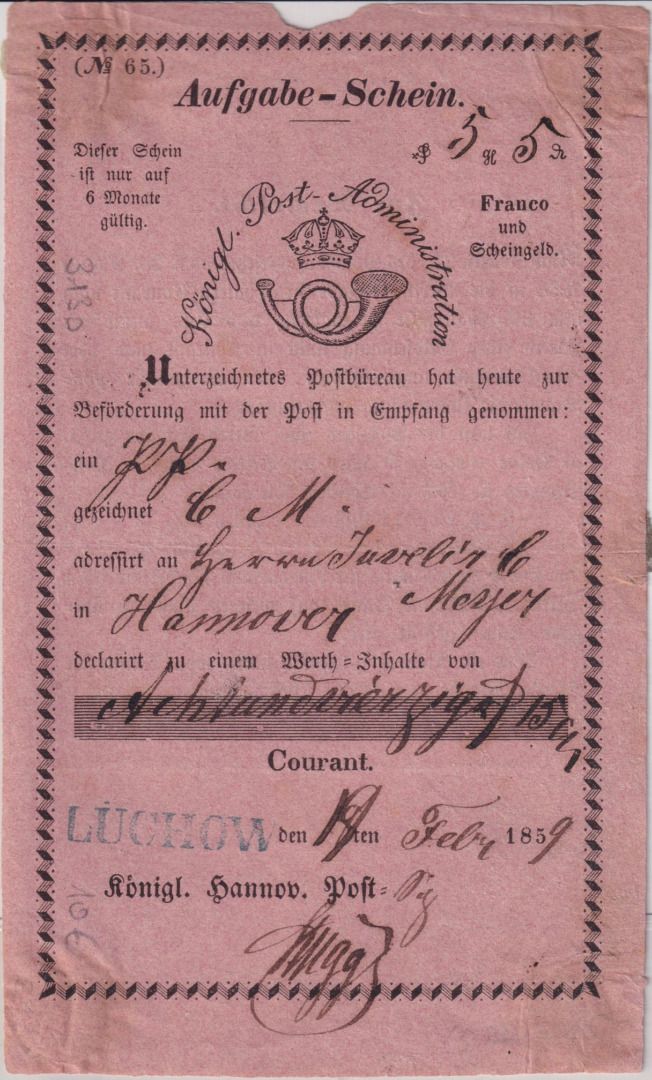 (№ 65.)
Aufgabe-Schein.
5 5
Dieser Schein
ist nur auf
6 Monate
gültig.
Franco
und
Scheingeld.
Königl. Post-Administration
3130
Unterzeichnetes Postbüreau hat heute zur
Beförderung mit der Post in Empfang genommen:
ein PP.
gezeichnet C M.
adressirt an Herrn C
Meyer
in Hannover
declarirt zu einem Werth=Inhalte von
Achtundvierzig 15
Courant.
LÜCHOW den ten Febr 1859
Königl. Hannov. Post=
106